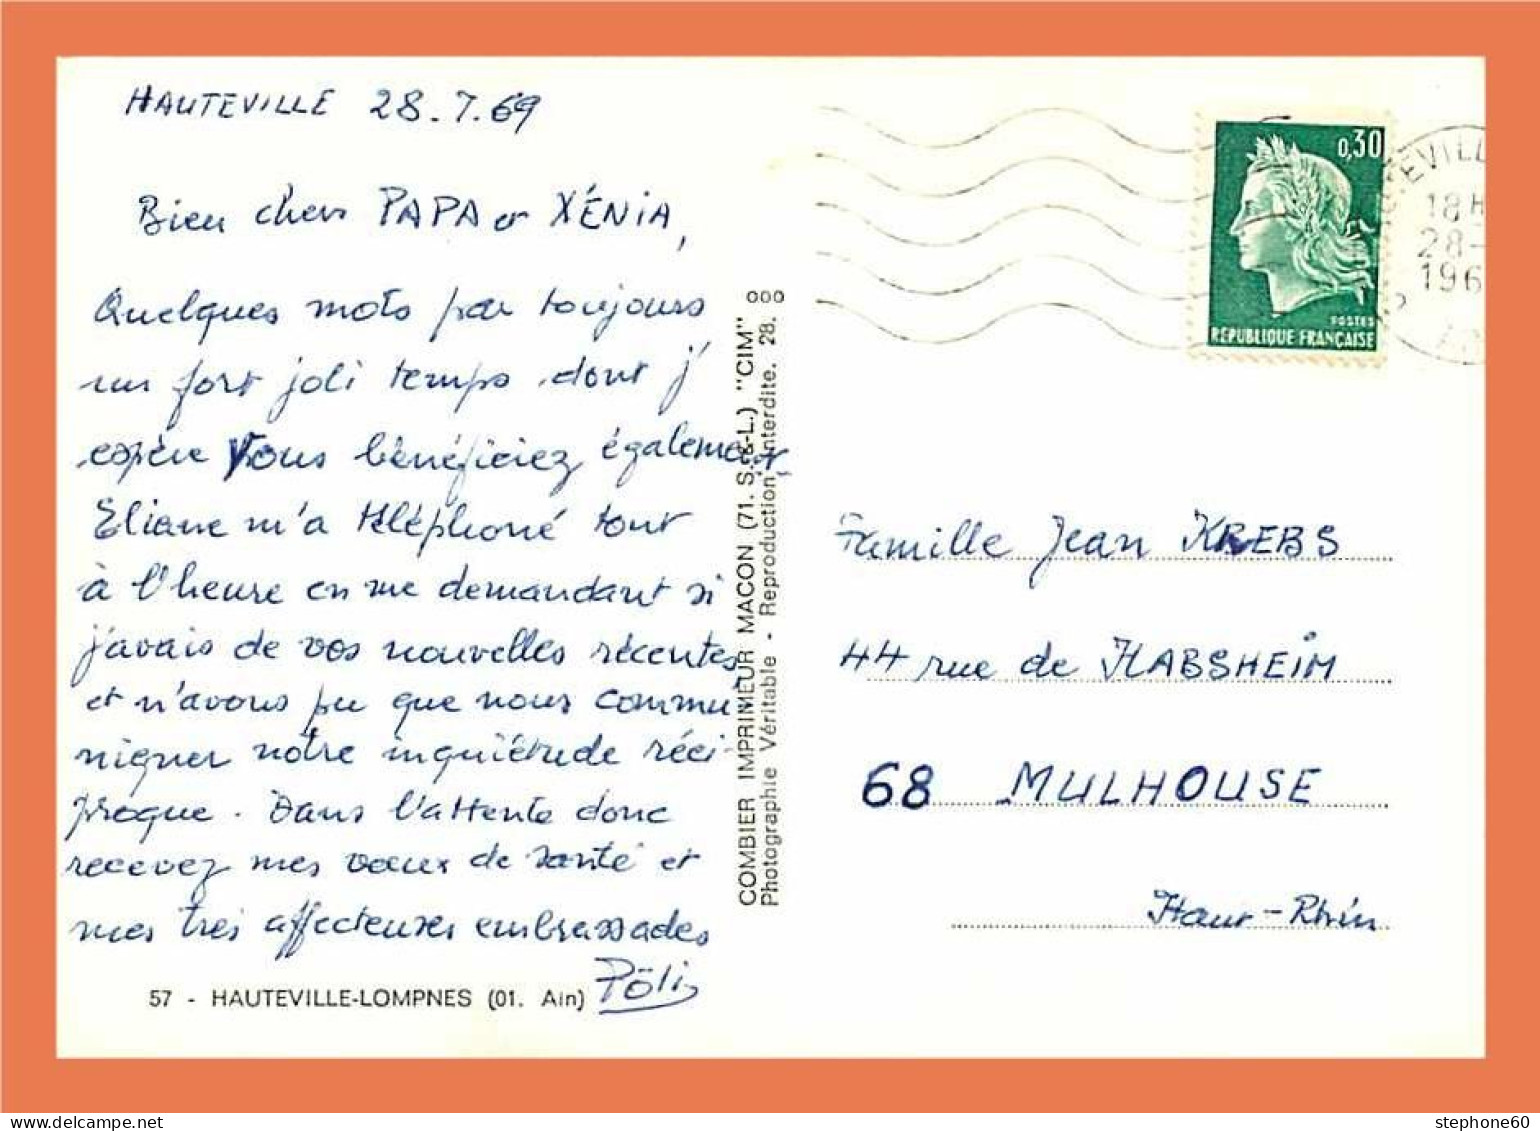 HAUTEVILLE 28.7.69
Bien chers PAPA et XÉNIA,
Quelques mots par toujours
un fort joli temps dont j'
espère Vous bénéficiez également
Eliane m'a téléphoné tout
à l'heure en me demandant si
j'avais de vos nouvelles récentes,
et n'avons pu que nous commu
niquer notre inquiétude réci-
proque. Dans l'attente donc
recevez mes vœux de santé et
mes très affectueuses embrassades
Pöli
57 - HAUTEVILLE-LOMPNES (01. Ain)
COMBIER IMPRIMEUR MACON (71. S.-&-L.) "CIM"
Photographie Véritable - Reproduction interdite. 28. 000
0,30
POSTES
RÉPUBLIQUE FRANÇAISE
TEVILL
18 H
28-
196
Famille Jean KREBS
44 rue de HABSHEIM
68 MULHOUSE
Haut-Rhin
stephone60 @ delcampe.net